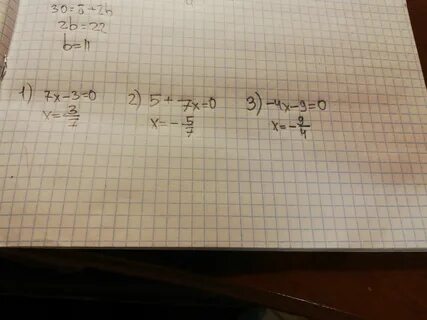 2b=22
b=11
1) 7x-3=0
x=3/7
2) 5+7x=0
x=-5/7
3) -4x-9=0
x=-9/4